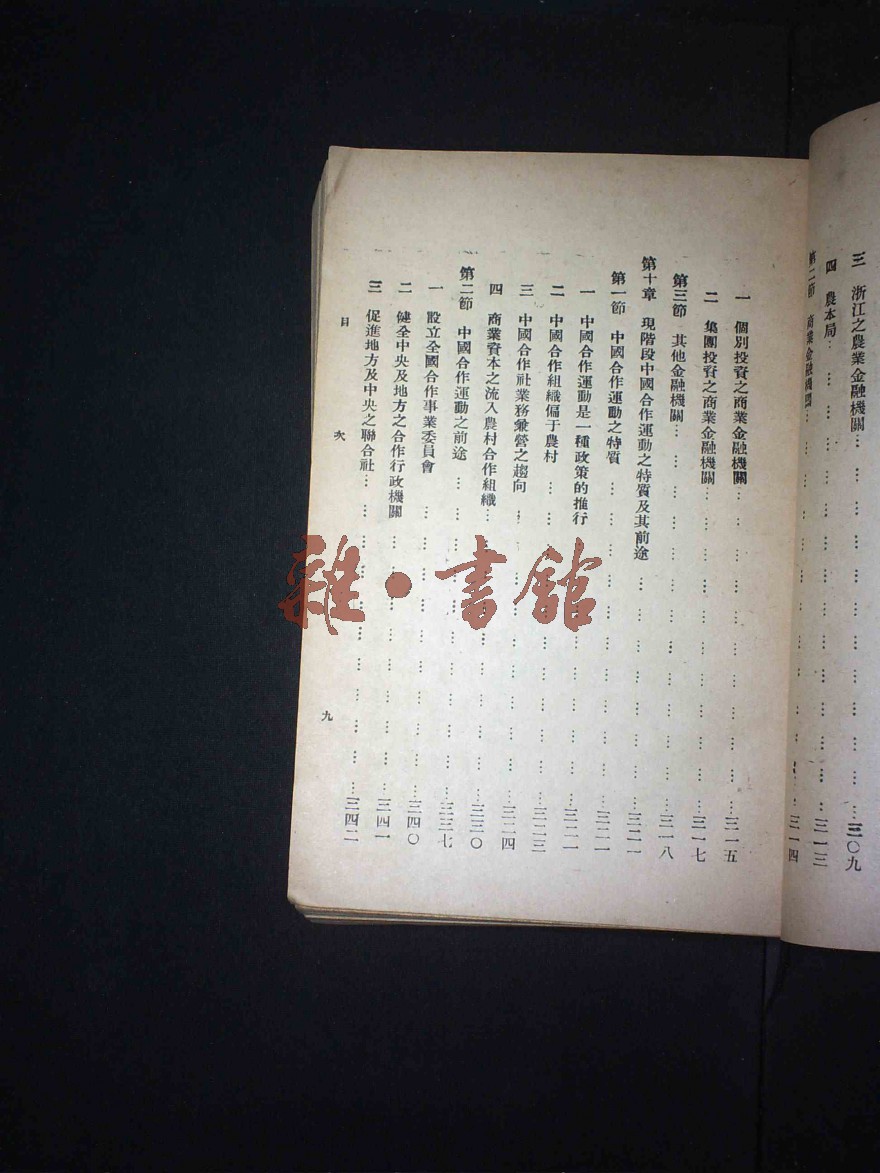 三 浙江之農業金融機關………………三〇九
四 農本局………………三一三
第二節 商業金融機關………………三一四
一 個別投資之商業金融機關………………三一五
二 集團投資之商業金融機關………………三一七
第三節 其他金融機關………………三一八
第十章 現階段中國合作運動之特質及其前途………………三二一
第一節 中國合作運動之特質………………三二一
一 中國合作運動是一種政策的推行………………三二一
二 中國合作組織偏于農村………………三二三
三 中國合作社業務兼營之趨向………………三二四
四 商業資本之流入農村合作組織………………三三〇
第二節 中國合作運動之前途………………三三七
一 設立全國合作事業委員會………………三四〇
二 健全中央及地方之合作行政機關………………三四一
三 促進地方及中央之聯合社………………三四二
目次
九
雜·書館